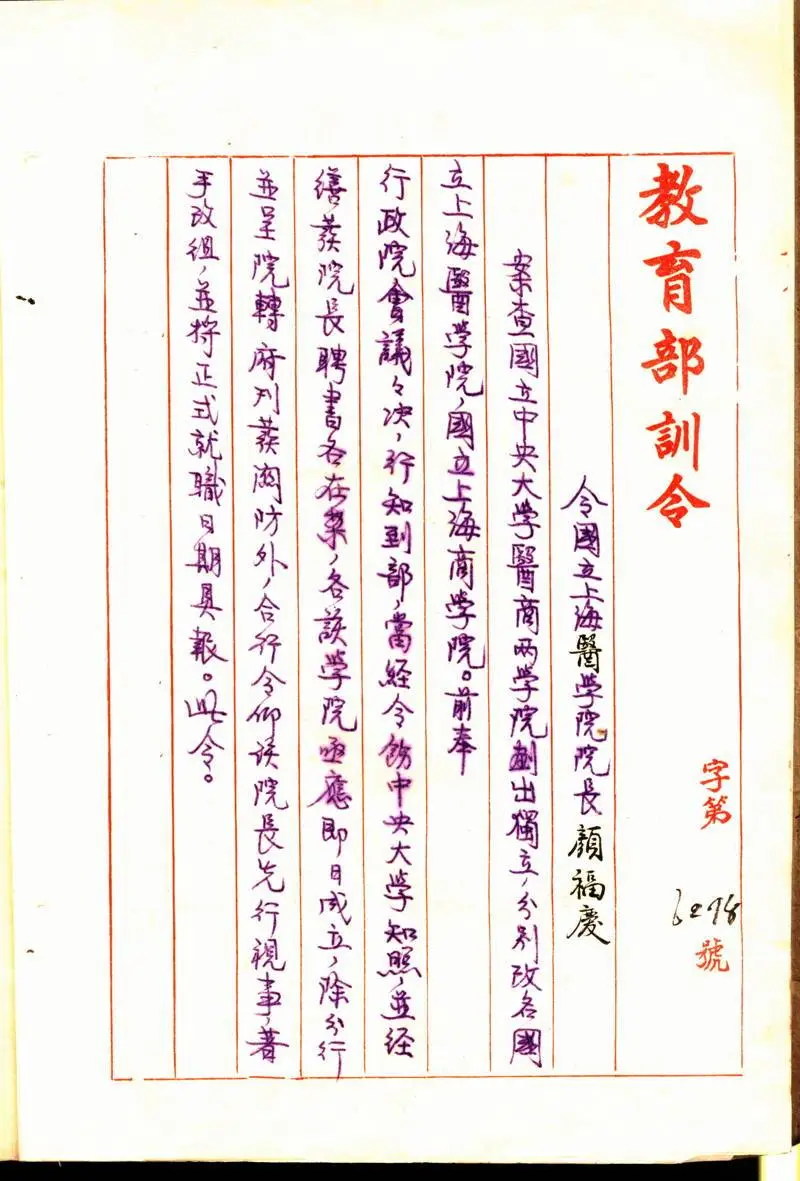 教育部訓令
字第6298號
令國立上海醫学院院長顏福慶
案查國立中央大学醫商兩学院劃出獨立,分别改名國
立上海醫学院,國立上海商学院。前奉
行政院會議々决,行知到部,當経令飭中央大学知照,並経
繕發院長聘書各在案,各該学院亟應即日成立,除分行
並呈院轉府刋發関防外,合行令仰该院長先行視事,著
手改組,並将正式就職日期具報。此令。